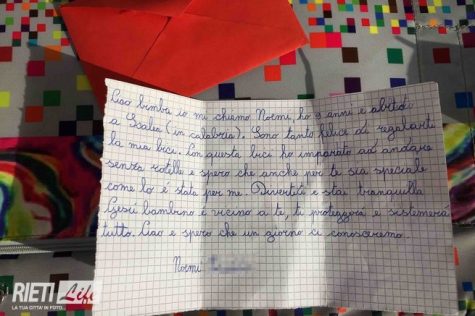 Ciao bimba io mi chiamo Noemi, ho 9 anni e abito
a Scalea (in calabria). Sono tanto felice di regalarti
la mia bici. Con questa bici ho imparato ad andare
senza rotelle e spero che anche per te sia speciale
come lo è stata per me. Divertiti e stai tranquilla
Gesù bambino è vicino a te, ti proteggerà e sistemerà
tutto. Ciao e spero che un giorno ci conosceremo.
Noemi
RIETI Life
LA TUA CITTA' IN FOTO